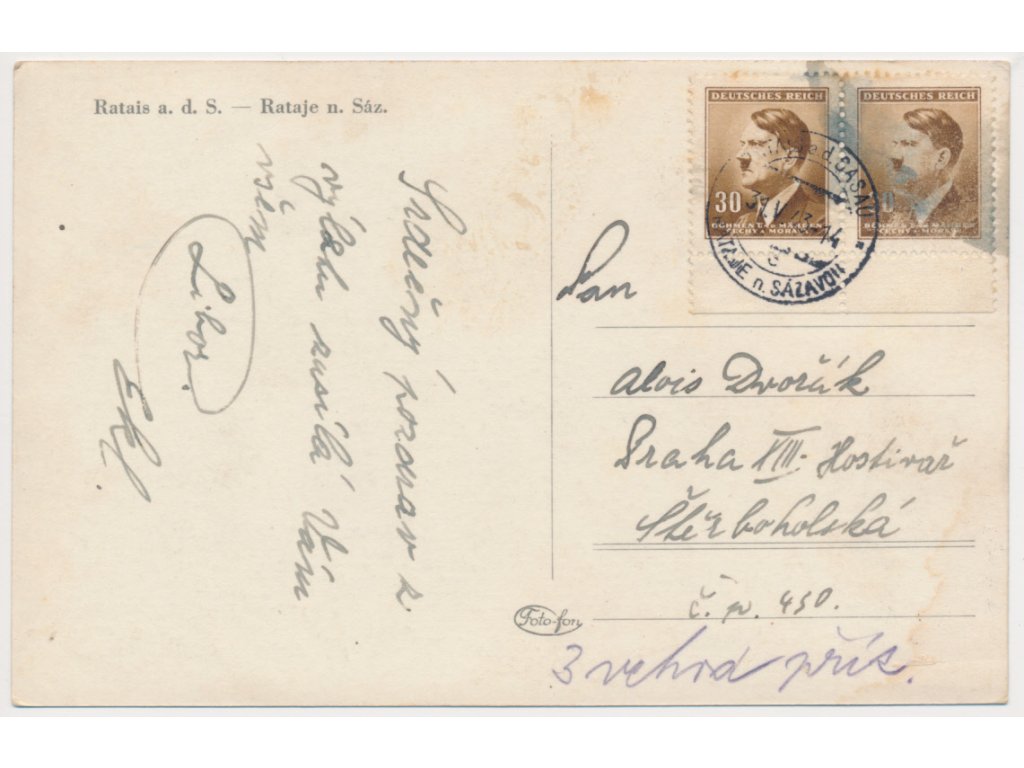 Ratais a. d. S. — Rataje n. Sáz.
Srdečný pozdrav z
výletu zasílá Vám
všem
Libor.
DEUTSCHES REICH
30
BÖHMEN UND MÄHREN
ČECHY A MORAVA
DEUTSCHES REICH
30
BÖHMEN UND MÄHREN
ČECHY A MORAVA
SASAU
RATAJE n. SÁZAVOU
Pan
Alois Dvořák
Praha XIII- Hostivař
Štěrboholská
č. p. 450.
Foto-fon
3 vchod příz.